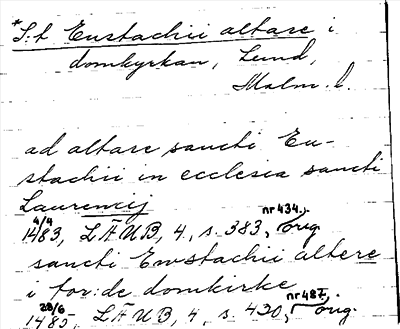 *S:t Eustachii altare i
domkyrkan, Lund,
Malm. l.
ad altare sancti Eu-
stachii in ecclesia sancti
Laurencij
4/4 1483, LÄUB, 4, s. 383, nr 434, orig.
sancti Ewstachii altere
i for:de domkirke
28/6 1485, LÄUB, 4, s. 430, nr 487, orig.